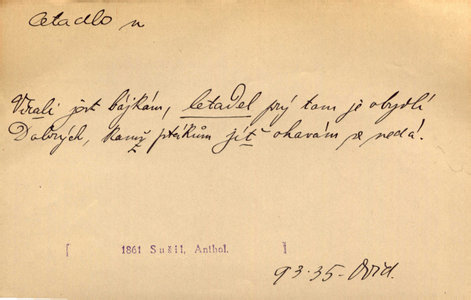 letadlo n
Viťali jest bájkám, letadel prý tam je obydlí
Dobrých, kamž ptákům jít ohavám se nedá.
[ 1861 Sušil, Anthol. ]
93.35 - Ovid.